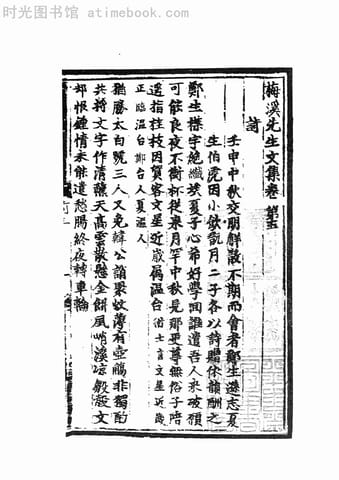 时光图书馆 - atimebook.com
梅溪先生文集卷第五
詩
壬申中秋交朋解散不期而會者鄭生遜志夏
生伯虎因小飲翫月二子各以詩贈依韻酬之
鄭生操宇絶纖埃夏子心希好學回誰遣吾人來破
可能良夜不銜杯從來月罕中秋見那更尊無俗子陪
遥指桂枝因賀客文星近歲偶温台術士言文星近歲
正臨温台鄭台人夏温人
猶勝太白號三人又免韓公詣聚蚊薄有壺觴非獨酌
共將文字作清醺天高雲散懸金餅風峭溪凉縠文
却恨鍾情未能遣愁腸終夜轉車輪